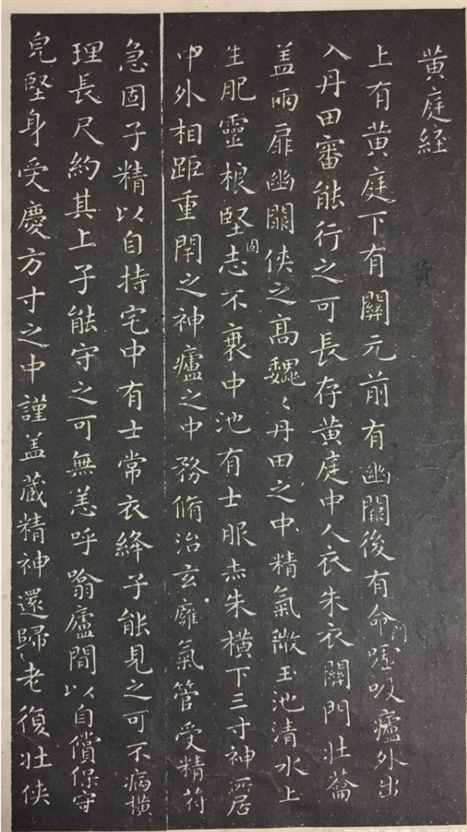 黃庭経
上有黃庭下有關元前有幽闕後有命門噓吸廬外出
入丹田審能行之可長存黃庭中人衣朱衣關門壯蘥
盖兩扉幽闕俠之高魏〻丹田之中精氣微玉池清水上
生肥靈根堅固志不衰中池有士服赤朱橫下三寸神所居
中外相距重閇之神廬之中務脩治玄𤸪氣管受精符
急固子精以自持宅中有士常衣絳子能見之可不病橫
理長尺約其上子能守之可無恙呼噏廬間以自償保守
皃堅身受慶方寸之中謹盖藏精神還歸老復壯俠